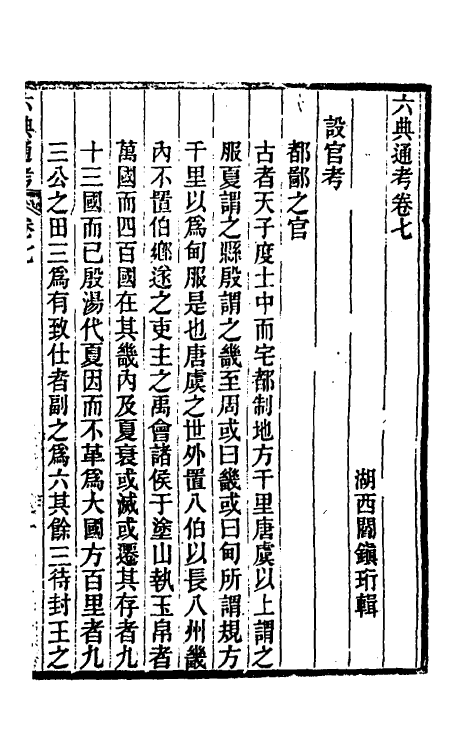 六典通考卷七
湖西閻鎭珩輯
設官考
都鄙之官
古者天子度土中而宅都制地方千里唐虞以上謂之
服夏謂之縣殷謂之畿至周或曰畿或曰甸所謂規方
千里以爲甸服是也唐虞之世外置八伯以長八州畿
內不置伯鄉遂之吏主之禹會諸侯于塗山執玉帛者
萬國而四百國在其畿內及夏衰或滅或遷其存者九
十三國而已殷湯代夏因而不革爲大國方百里者九
三公之田三爲有致仕者副之爲六其餘三待封王之
六典通考 卷七